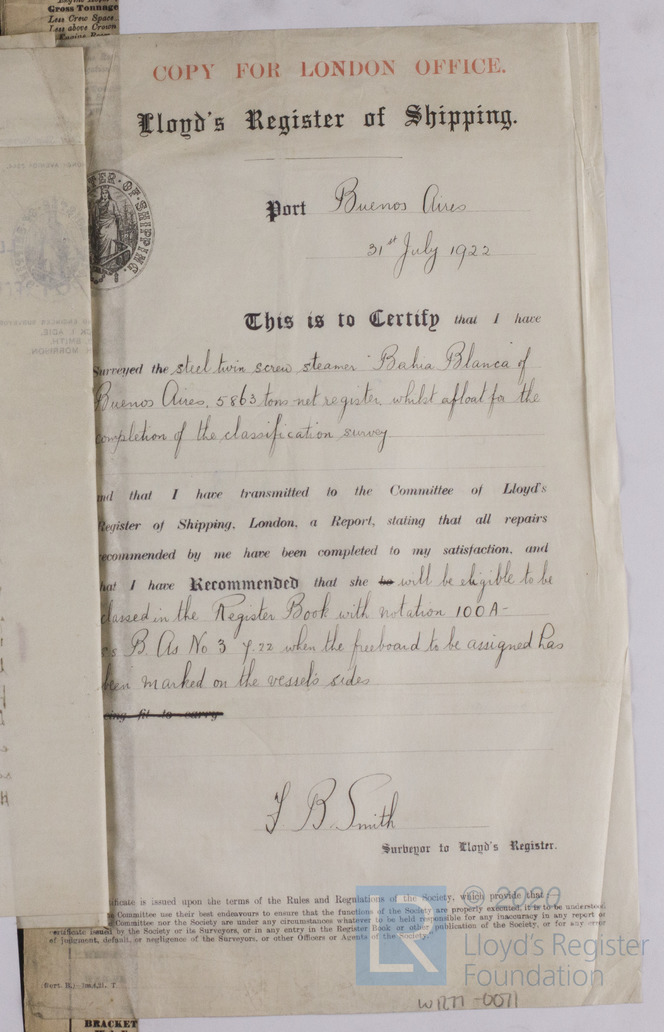 Gross Tonnage
Less Crew Space
Less above Crown
Engine Room
COPY FOR LONDON OFFICE.
Lloyd's Register of Shipping.
TER·OF·SHIPPING.
Port Buenos Aires
31st July 1922
This is to Certify that I have
Surveyed the steel twin screw steamer "Bahia Blanca" of
Buenos Aires. 5863 tons net register, whilst afloat for the
completion of the classification survey.
and that I have transmitted to the Committee of Lloyd's
Register of Shipping, London, a Report, stating that all repairs
recommended by me have been completed to my satisfaction, and
that I have Recommended that she be will be eligible to be
classed in the Register Book with notation 100A-
B. As No 3 7.22 when the freeboard to be assigned has
been marked on the vessel's sides
being fit to carry
F B Smith
Surveyor to Lloyd's Register.
certificate is issued upon the terms of the Rules and Regulations of the Society, which provide that
he Committee use their best endeavours to ensure that the functions of the Society are properly executed, it is to be understood
Committee nor the Society are under any circumstances whatever to be held responsible for any inaccuracy in any report or
certificate issued by the Society or its Surveyors, or in any entry in the Register Book or other publication of the Society, or for any error
of judgment, default, or negligence of the Surveyors, or other Officers or Agents of the Society."
© 2020
LR Lloyd's Register
Foundation
W1277-0071
BRACKET